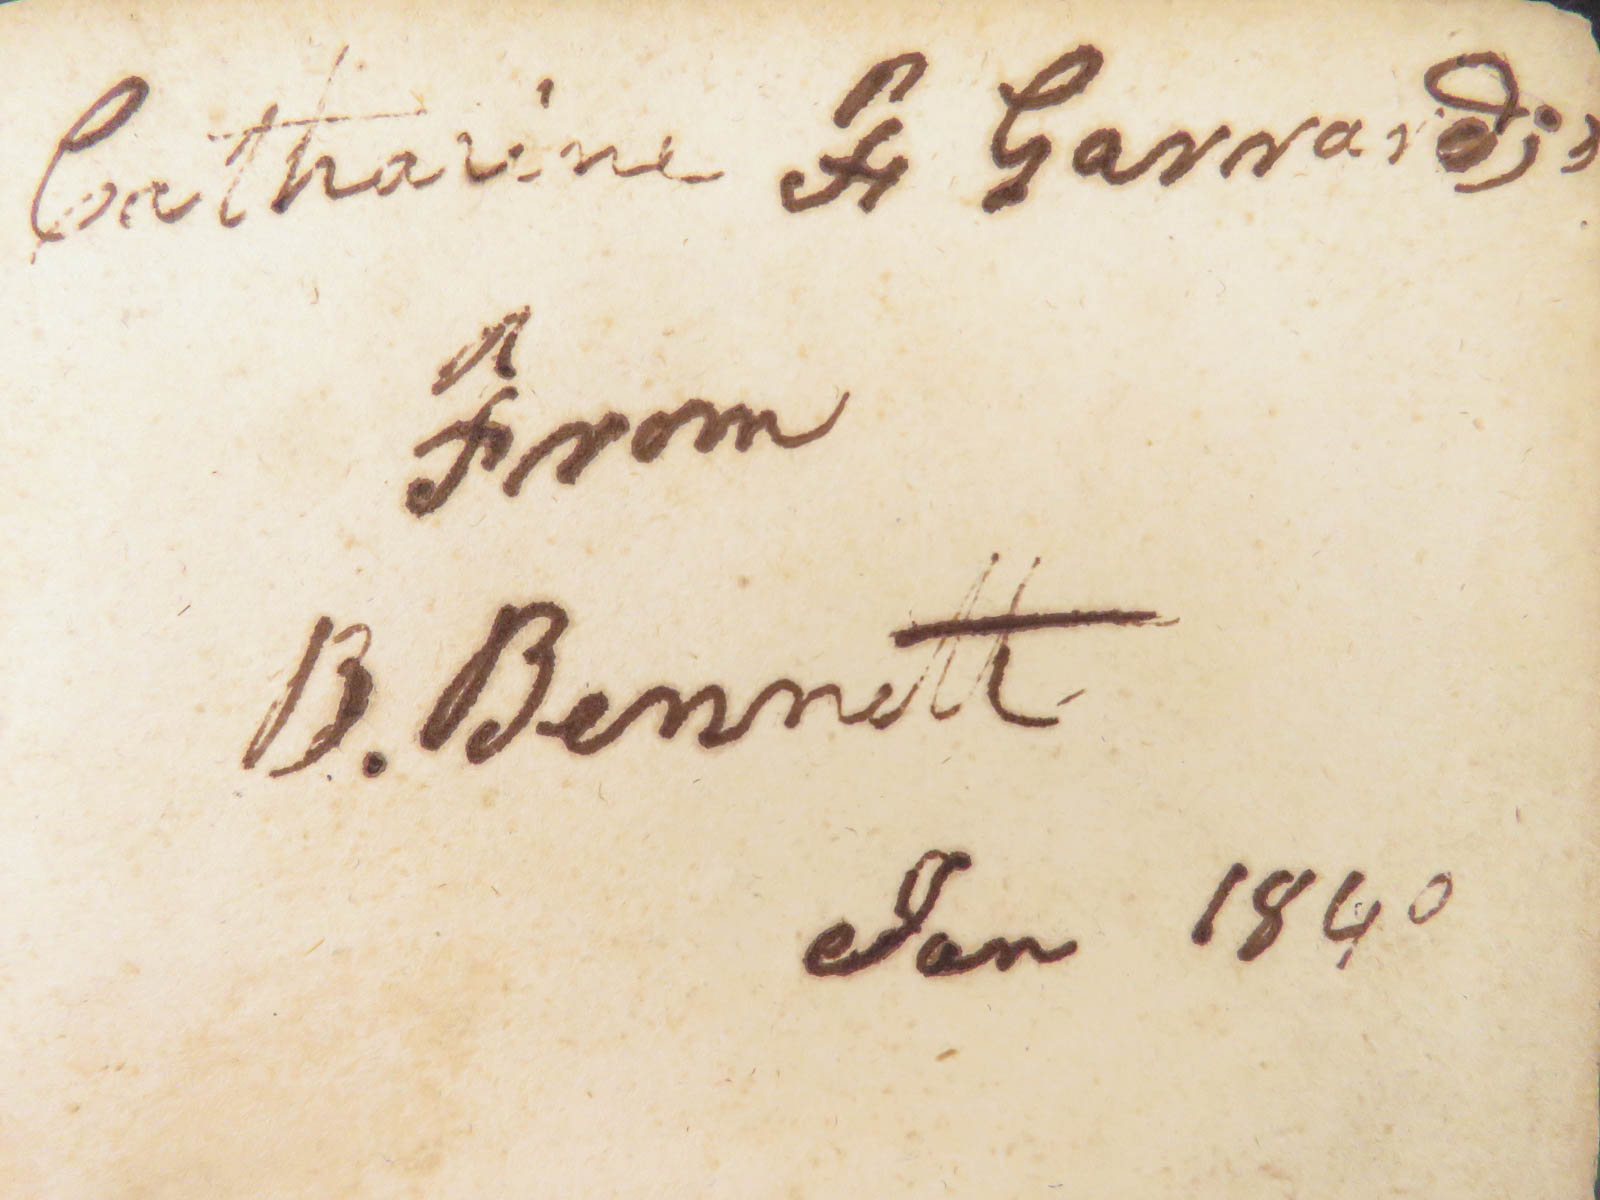 Catharine F Garrard's
From
B. Bennett
Jan 1840